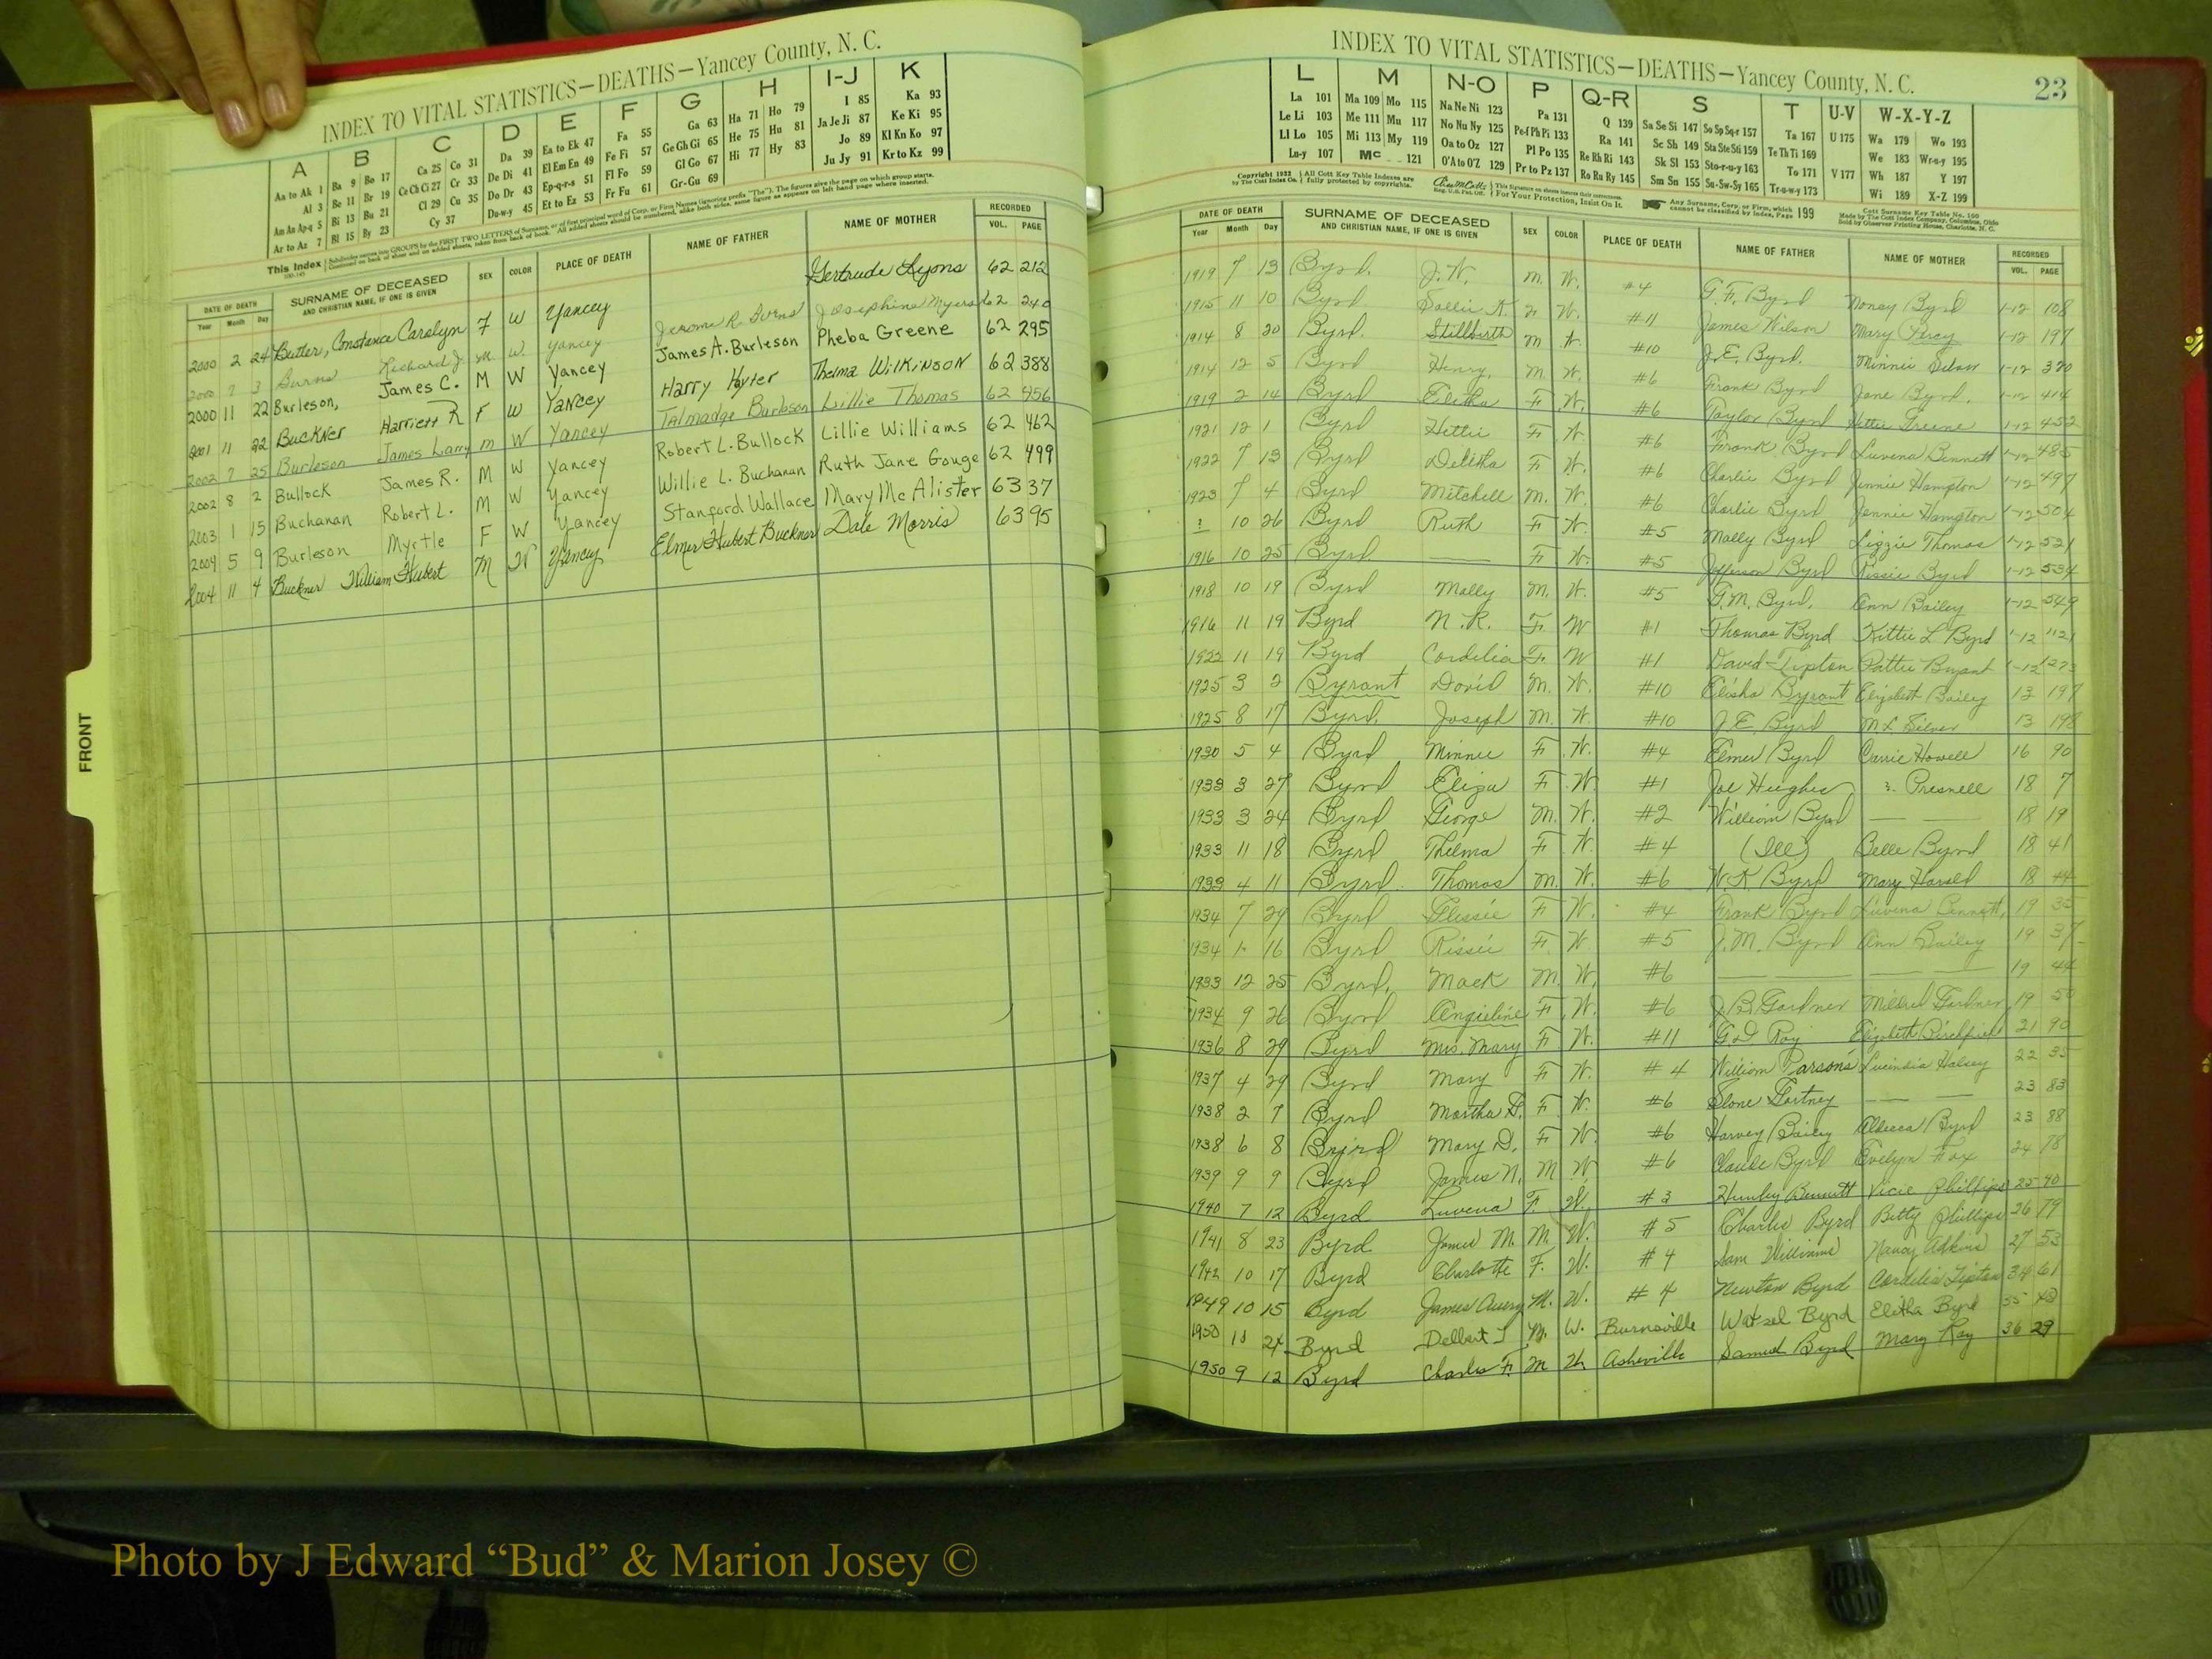 INDEX TO VITAL STATISTICS—DEATHS—Yancey County, N. C.
A B C D E F G H I-J K
Aa to Ak 1 Ba 9 Bo 17 Ca 25 Co 31 Da 39 Ea to Ek 47 Fa 55 Ga 63 Ha 71 Ho 79 I 85 Ka 93
Al 3 Be 11 Br 19 Ce Ch Ci 27 Cr 33 De Di 41 El Em En 49 Fe Fi 57 Ge Gh Gi 65 He 75 Hu 81 Ja Je Ji 87 Ke Ki 95
Am An Ap-q 5 Bi 13 Bu 21 Cl 29 Cu 35 Do Dr 43 Ep-q-r-s 51 Fl Fo 59 Gl Go 67 Hi 77 Hy 83 Jo 89 Kl Kn Ko 97
Ar to Az 7 Bl 15 By 23 Cy 37 Du-w-y 45 Et to Ez 53 Fr Fu 61 Gr-Gu 69 Ju Jy 91 Kr to Kz 99
This Index
DATE OF DEATH SURNAME OF DECEASED SEX COLOR PLACE OF DEATH NAME OF FATHER NAME OF MOTHER RECORDED
Year Month Day AND CHRISTIAN NAME, IF ONE IS GIVEN VOL. PAGE
2000 2 24 Butler, Constance Carolyn F W Yancey Gertrude Lyons 62 212
2000 7 3 Burns Richard J. M W. Yancey Jerome R. Burns Josephine Myers 62 240
2000 11 22 Burleson, James C. M W Yancey James A. Burleson Pheba Greene 62 295
2001 11 22 Buckner Harriett R F W Yancey Harry Hyter Thelma Wilkinson 62 388
2002 7 25 Burleson James Larry M W Yancey Talmadge Burleson Lillie Thomas 62 456
2002 8 2 Bullock James R. M W Yancey Robert L. Bullock Lillie Williams 62 462
2003 1 15 Buchanan Robert L. M W Yancey Willie L. Buchanan Ruth Jane Gouge 62 499
2004 5 9 Burleson Myrtle F W Yancey Stanford Wallace Mary McAlister 63 37
2004 11 4 Buckner William Hubert M W Yancey Elmer Hubert Buckner Dale Morris 63 95
FRONT
INDEX TO VITAL STATISTICS—DEATHS—Yancey County, N. C. 23
L M N-O P Q-R S T U-V W-X-Y-Z
La 101 Ma 109 Mo 115 Na Ne Ni 123 Pa 131 Q 139 Sa Se Si 147 So Sp Sq-r 157 Ta 167 U 175 Wa 179 Wo 193
Le Li 103 Me 111 Mu 117 No Nu Ny 125 Pe-f Ph Pi 133 Ra 141 Sc Sh 149 Sta Ste Sti 159 Te Th Ti 169 We 183 Wr-u-y 195
Ll Lo 105 Mi 113 My 119 Oa to Oz 127 Pl Po 135 Re Rh Ri 143 Sk Sl 153 Sto-r-u-y 163 To 171 V 177 Wh 187 Y 197
Lu-y 107 Mc 121 O'A to O'Z 129 Pr to Pz 137 Ro Ru Ry 145 Sm Sn 155 Su-Sw-Sy 165 Tr-u-w-y 173 Wi 189 X-Z 199
Copyright 1932 by The Cott Index Co. All Cott Key Table Indexes are fully protected by copyrights. For Your Protection, Insist On It. Any Surname, Corp. or Firm, which cannot be classified by Index, Page 199
DATE OF DEATH SURNAME OF DECEASED SEX COLOR PLACE OF DEATH NAME OF FATHER NAME OF MOTHER RECORDED
Year Month Day AND CHRISTIAN NAME, IF ONE IS GIVEN VOL. PAGE
1919 7 13 Byrd. J. W. M. W. #4 G. F. Byrd Noney Byrd 1-12 108
1915 11 10 Byrd Sallie K. W. #11 James Wilson Mary 1-12 197
1914 8 20 Byrd. Stillbirth M W. #10 J. E. Byrd. Minnie Silver 1-12
1914 12 5 Byrd Henry. M. W. #6 Frank Byrd Jane Byrd. 1-12 414
1919 2 14 Byrd Elitha F W. #6 Taylor Byrd Hettie Greene 1-12 452
1921 12 1 Byrd Hettie F W. #6 Frank Byrd Luvena Bennett 1-12 485
1922 7 13 Byrd Delitha F W. #6 Charlie Byrd Jennie Hampton 1-12 497
1923 7 4 Byrd Mitchell M. W. #6 Charlie Byrd Jennie Hampton 1-12 504
? 10 26 Byrd Ruth F W. #5 Molly Byrd Lizzie Thomas 1-12 521
1916 10 25 Byrd — F W. #5 Jefferson Byrd Rissie Byrd 1-12 534
1918 10 19 Byrd Molly M. W. #5 G. M. Byrd. Ann Bailey 1-12 549
1916 11 19 Byrd N. R. F. W #1 Thomas Byrd Kittie L Byrd 1-12 1121
1922 11 19 Byrd Cordelia F. W #1 David Tipton Pattie Bryant 1-12 1273
1925 3 2 Byrant David M. W. #10 Elisha Byrant Elizabeth Bailey 13 197
1925 8 17 Byrd. Joseph M. W. #10 J. E. Byrd M. L. Silver 13 198
1930 5 4 Byrd Minnie F W. #4 Elmer Byrd Carrie Howell 16 90
1933 3 27 Byrd Eliza F W. #1 Joe Hughes ? Presnell 18 7
1933 3 24 Byrd George M. W. #2 William Byrd — — 18 19
1933 11 18 Byrd Thelma F W. #4 (Ill) Belle Byrd 18 41
1933 4 11 Byrd Thomas M. W. #6 W. K. Byrd Mary 18 44
1934 7 29 Byrd Flissie F W. #4 Frank Byrd Luvena Bennett 19 35
1934 1 16 Byrd Rissie F W #5 J. M. Byrd Ann Bailey 19 37
1933 12 25 Byrd, Mack M W. #6 — — — — 19 44
1934 9 26 Byrd Angieline F W. #6 J. B. Gardner Mildred Gardner 19 50
1936 8 29 Byrd Mrs. Mary F W. #11 G D Ray Elizabeth Birchfield 21 90
1937 4 29 Byrd Mary F W. #4 William Parsons Lucindia Halsey 22 35
1938 2 7 Byrd Martha F. W. #6 — — 23 83
1938 6 8 Byrd Mary D. F W #6 Harvey Bailey Byrd 23 88
1939 9 9 Byrd James N. M W #6 Claude Byrd Evelyn Fox 24 78
1940 7 12 Byrd Luvena F. W. #3 Bennett Vicie Phillips 25 40
1941 8 23 Byrd. James M. M W. #5 Charlie Byrd Betty Phillips 26 79
1942 10 17 Byrd Charlotte F. W. #4 Sam Williams Nancy Adkins 27 53
1949 10 15 Byrd James Avery M. W. #4 Newton Byrd Cordelia Tipton 34 61
1950 24 Byrd Delbert M. W. Burnsville Byrd Elitha Byrd 35
1950 9 12 Byrd Charles F. M W Asheville Samuel Byrd Mary Ray 36 29
Photo by J Edward “Bud” & Marion Josey ©